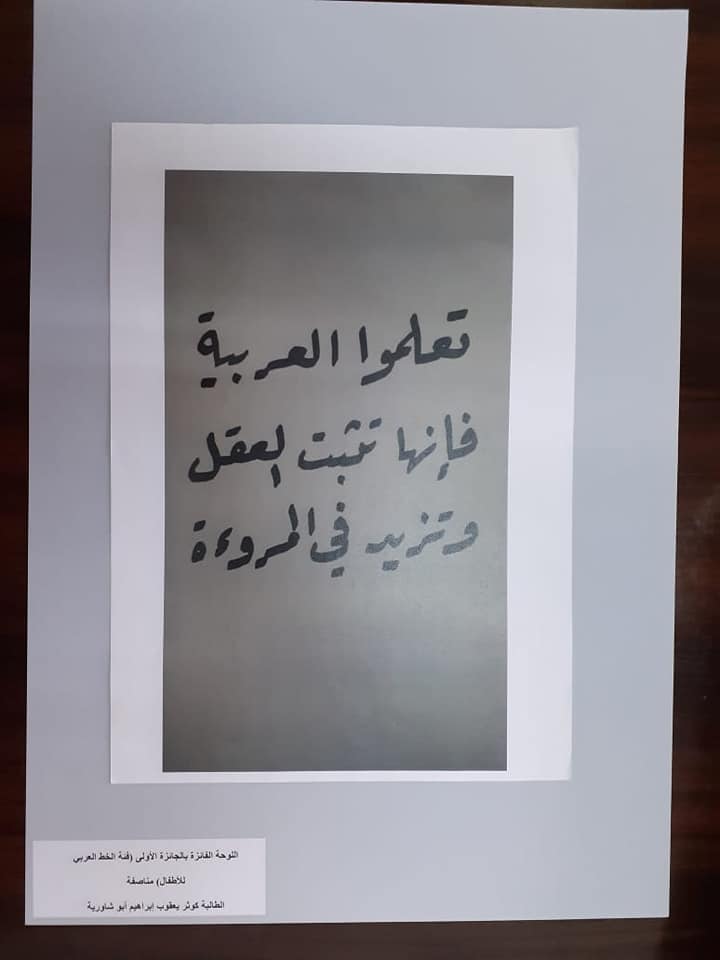 تعلموا العربية
فإنها تثبت العقل
وتزيد في المروءة
اللوحة الفائزة بالجائزة الأولى (فئة الخط العربي
للأطفال) مناصفة
الطالبة كوثر يعقوب إبراهيم أبو شاورية